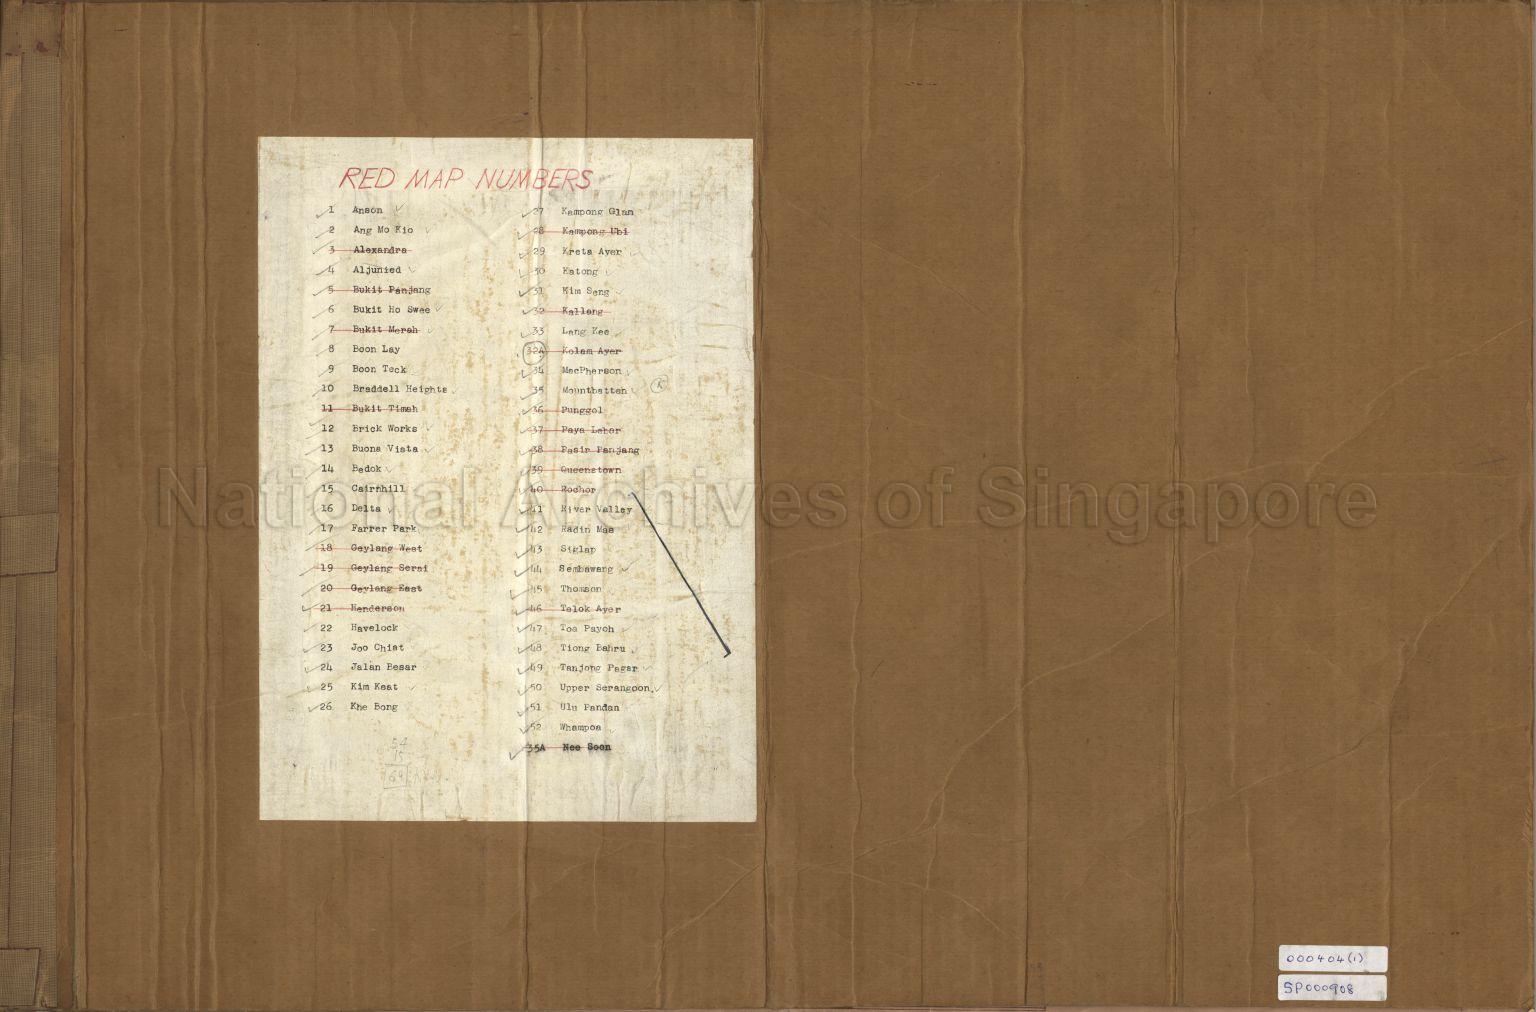 RED MAP NUMBERS
1 Anson
2 Ang Mo Kio
3 Alexandra
4 Aljunied
5 Bukit Panjang
6 Bukit Ho Swee
7 Bukit Merah
8 Boon Lay
9 Boon Teck
10 Braddell Heights
11 Bukit Timah
12 Brick Works
13 Buona Vista
14 Bedok
15 Cairnhill
16 Delta
17 Farrer Park
18 Geylang West
19 Geylang Serai
20 Geylang East
21 Henderson
22 Havelock
23 Joo Chiat
24 Jalan Besar
25 Kim Keat
26 Khe Bong
54
15
69
27 Kampong Glam
28 Kampong Ubi
29 Kreta Ayer
30 Katong
31 Kim Seng
32 Kallang
33 Leng Kee
32A Kolam Ayer
34 MacPherson
35 Mountbatten K
36 Punggol
37 Paya Lebar
38 Pasir Panjang
39 Queenstown
40 Rochor
41 River Valley
42 Radin Mas
43 Siglap
44 Sembawang
45 Thomson
46 Telok Ayer
47 Toa Payoh
48 Tiong Bahru
49 Tanjong Pagar
50 Upper Serangoon
51 Ulu Pandan
52 Whampoa
35A Nee Soon
National Archives of Singapore
000404(1)
SP000908